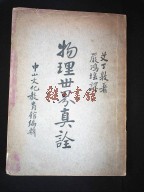 艾丁敦著
嚴鴻瑤譯
物理世界真詮
中山文化教育館編輯